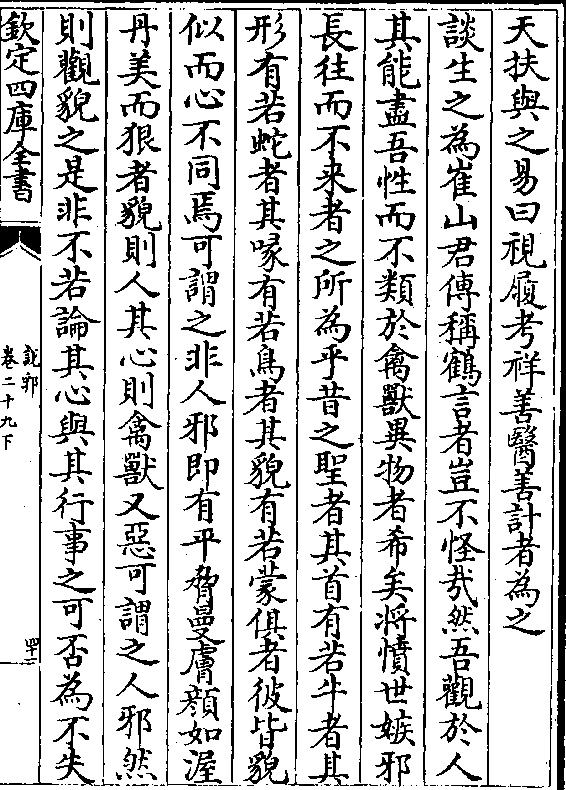 天扶與之易曰視履考祥善醫善計者為之
談生之為崔山君傳稱鶴言者豈不怪㢤然吾觀於人
其能盡吾性而不類於禽獸異物者希矣將憤世嫉邪
長往而不来者之所為乎昔之聖者其首有若牛者其
形有若蛇者其喙有若鳥者其貌有若蒙倛者彼皆貌
似而心不同焉可謂之非人邪即有平脅曼膚顔如渥
丹美而狠者貌則人其心則禽獸又惡可謂之人邪然
則觀貌之是非不若論其心與其行事之可否為不失
欽定四庫全書
說郛
卷二十九下